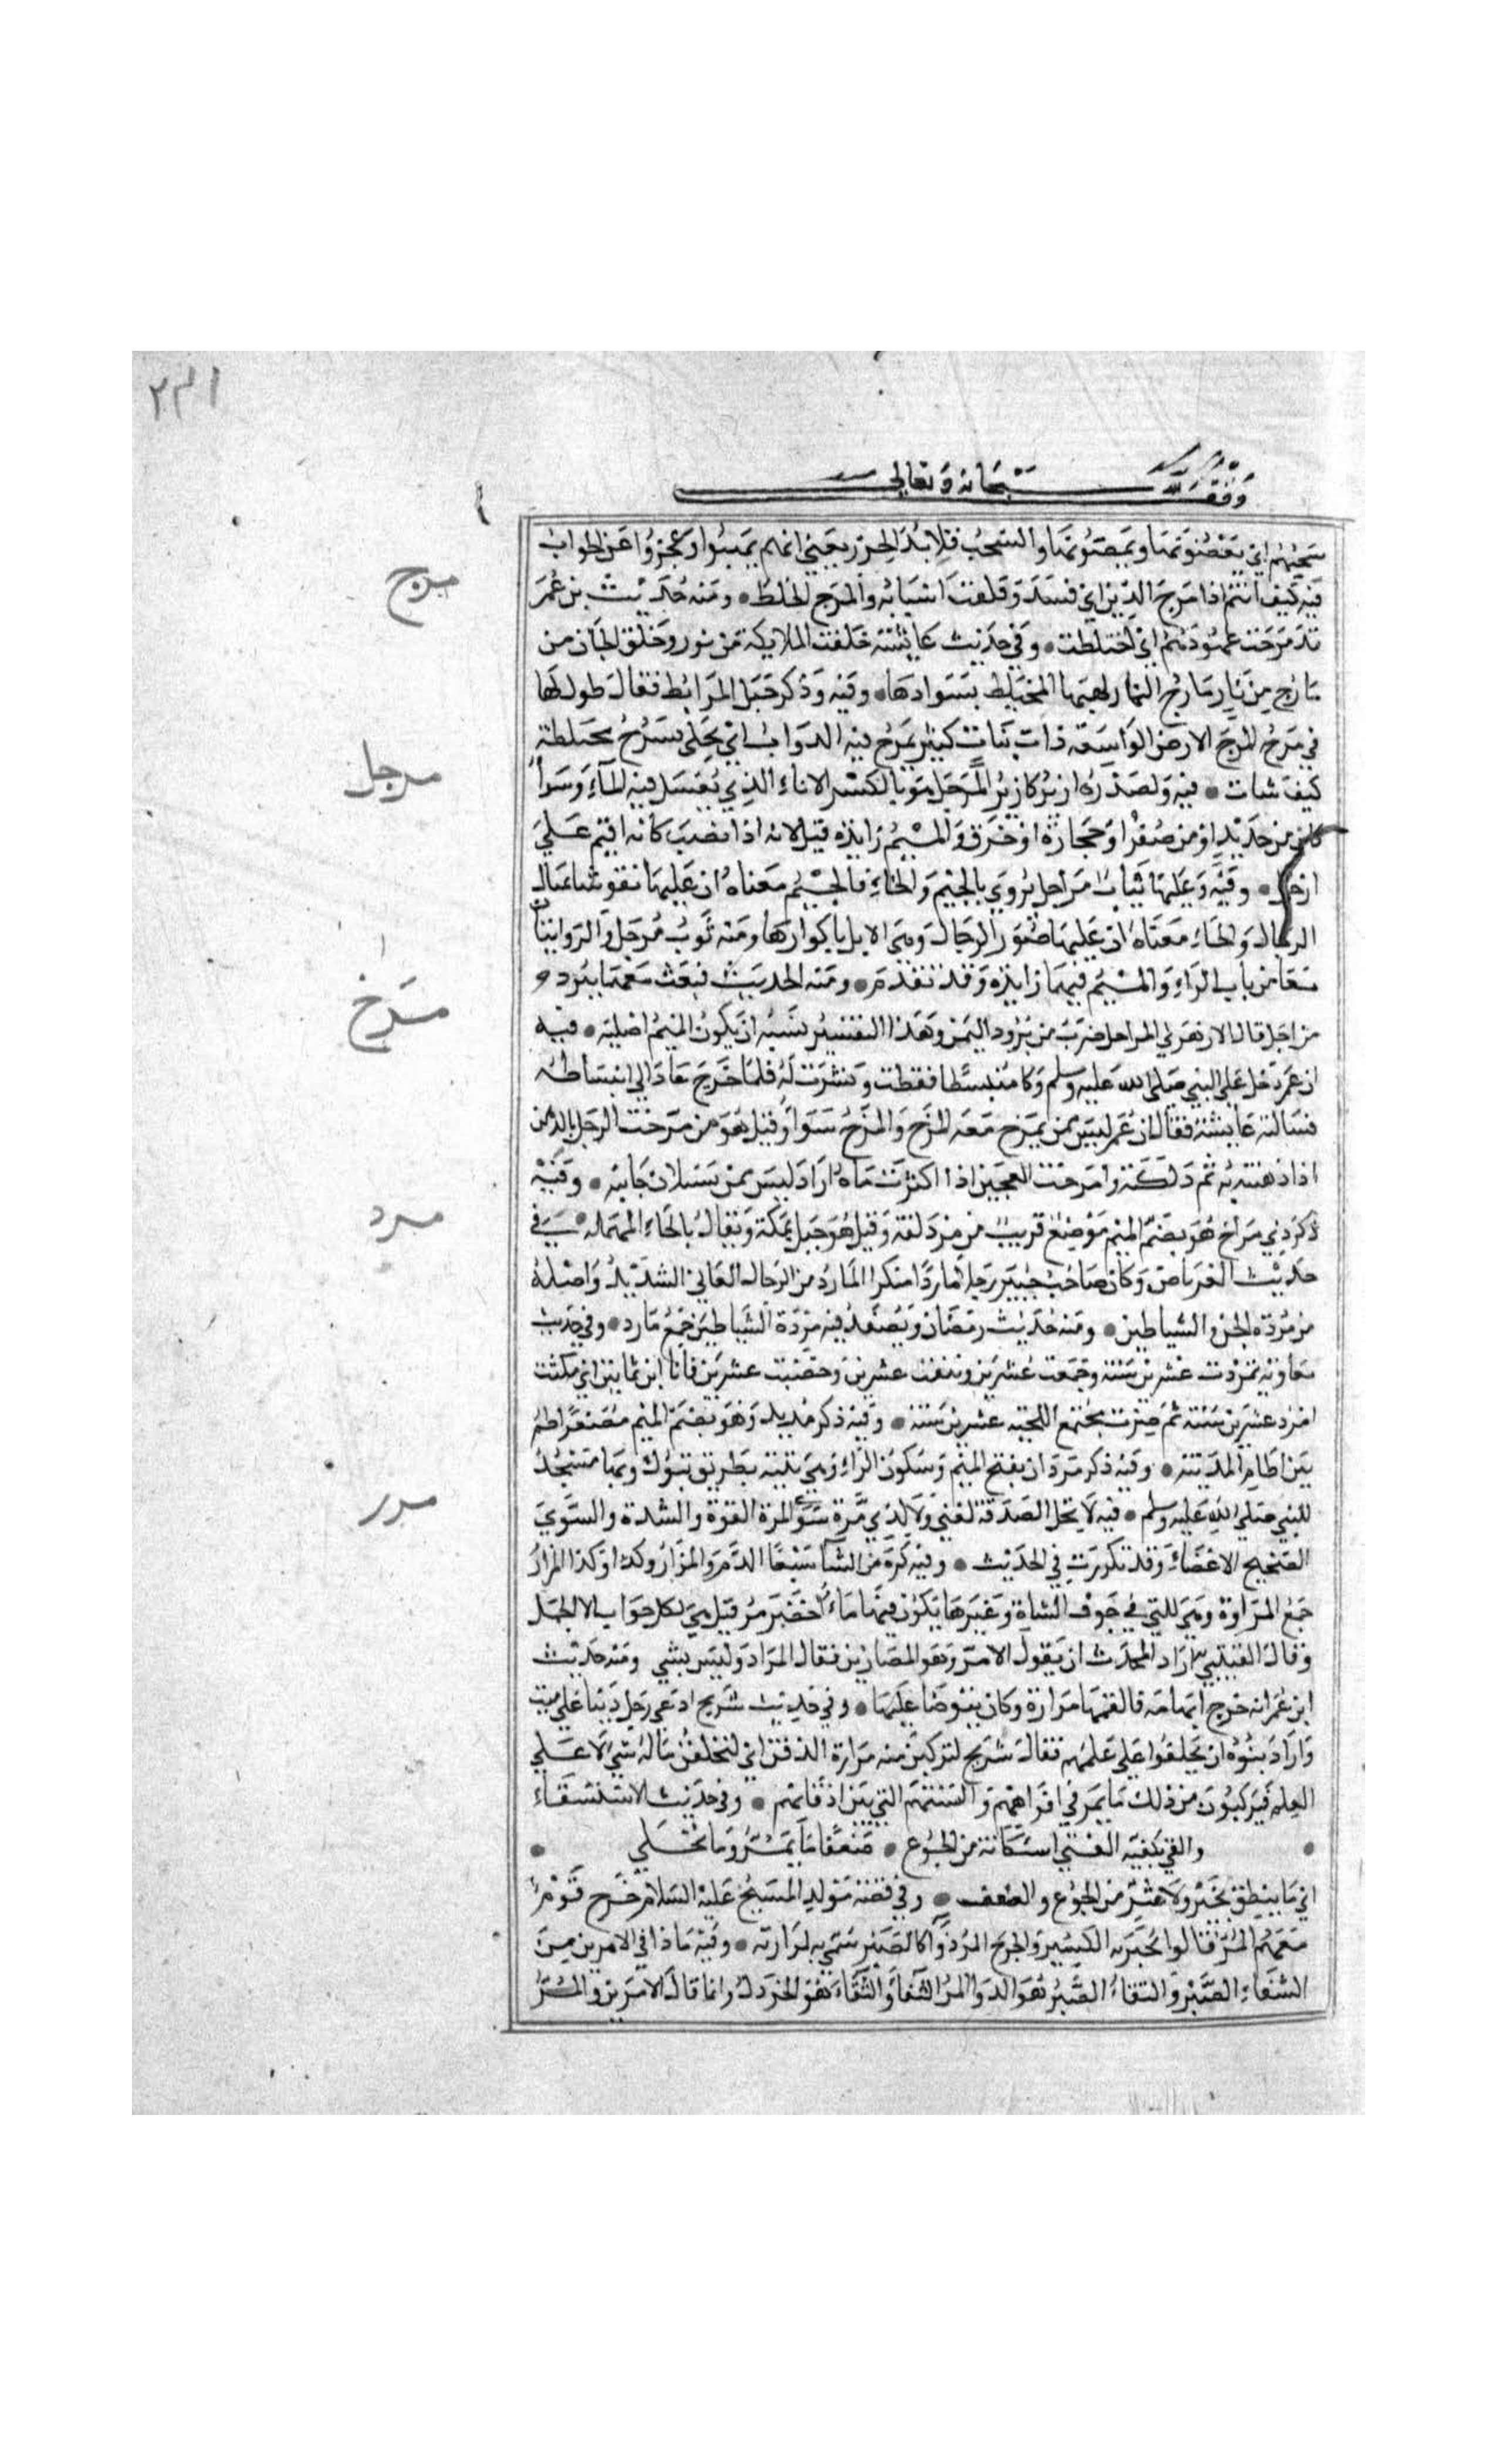 وقف لله سبحانه وتعالى
سحبهم اي يعضونها ويمصونها والسحب قلايد الخرز يعني انهم يمينوا وعجزوا عن الجواب
مرج
فيه كيف انتم اذا مرج الدين اي فسد وقلقت اسبابه والمرج الخلط • ومنه حديث بن عمر
قد مرجت عهودهم اي اختلطت • وفي حديث عايشة خلقت الملايكة من نور وخلق الجان من
مارج من نار مارج النار لهبها المختلط بسوادها • وفيه وذكر خيل المرابط فقال طول لها
في مرج المرج الارض الواسعة ذات نبات كثير يمرج فيه الدواب اي تخلى تسرح مختلطة
مرجل
كيف شات • فيه ولصدره ازيز كازيز المرجل هو بالكسر الاناء الذي يغتسل فيه الماء وسوا
كان من حديد او من صفر او حجارة او خزف والميم زايدة قيل لانه اذا نصب كانه اقيم على
ارجل • وفيه وعليها ثياب مراجل يروي بالجيم والحاء فالجيم معناه ان عليها نقوشا تمثال
الرجال والحاء معناه ان عليها صور الرحال وهي الابل باكوارها ومنه ثوب مرجل والروايتان
معا من باب الراء والميم فيهما زايدة وقد تقدم • ومنه الحديث فبعث معهما ببرد
مراجل قال الازهري المراجل ضرب من برود اليمن وهذا التفسير يشبه ان يكون الميم اصلية • فيه
مرخ
ان عمر دخل على النبي صلى الله عليه وسلم وكان منبسطا فقطب وتشزن له فلما خرج عاد الى انبساطه
فسالته عايشة فقال ان عمر ليس ممن يمرخ معه المرخ والمزح سوا وقيل هو من مرخت الرجل بالدهن
اذا دهنته به ثم دلكته وامرخت العجين اذا اكثرت ماه اراد ليس ممن يستلان جانبه • وفيه
ذكر ذي مراخ هو بضم الميم موضع قريب من مزدلفة وقيل هو جبل بمكة ويقال بالحاء المهملة • في
مرد
حديث العرباض وكان صاحب خيبر رجلا ماردا منكرا المارد من الرجال العاتي الشديد واصله
من مردة الجن والشياطين • ومنه حديث رمضان وتصفد فيه مردة الشياطين جمع مارد • وفي حديث
معاوية تمردت عشرين سنة وجمعت عشرين ونتفت عشرين وخضبت عشرين فانا ابن ثمانين اي مكثت
امرد عشرين سنة ثم صرت مجتمع اللحية عشرين سنة • وفيه ذكر مريد وهو بضم الميم مصغرا اطم
بين اطام المدينة • وفيه ذكر مردان بفتح الميم وسكون الراء وهي ثنية بطريق تبوك وبها مسجد
مرر
للنبي صلى الله عليه وسلم • فيه لا تحل الصدقة لغني ولا لذي مرة سوي المرة القوة والشدة والسوي
الصحيح الاعضاء وقد تكررت في الحديث • وفيه كره من الشا سبعا الدم والمرار وكذا وكذا المرار
جمع المرارة وهي التي في جوف الشاة وغيرها يكون فيها ماء اخضر مر قيل هي لكل حيوان الا الجمل
وقال القتيبي اراد المحدث ان يقول الامر وهو المصارين فقال المرار وليس بشي ومنه حديث
ابن عمر انه جرح ابهامه فالقمها مرارة وكان يتوضا عليها • وفي حديث شريح ادعى رجل دينا على ميت
واراد بنوه ان يحلفوا على علمهم فقال شريح لتركبن منه مرارة الذقن اي لتحلفن ماله شي لا على
العلم فيركبون من ذلك ما يمر في افواههم والسنتهم التي بين اذقانهم • وفي حديث الاستسقاء
• والقى بكفيه الفتى استكانة من الجوع • ضعفا ما يمر وما يحلي •
اي ما ينطق بخير ولا شر من الجوع والضعف • وفي قصة مولد المسيح عليه السلام خرج قوم
معهم المر قالوا نجبر به الكسير والجرح المر دوا كالصبر سمي به لمرارته • وفيه ماذا في الامرين من
الشفاء الصبر والثفاء الصبر هو الدوا المر والثفاء هو الخردل وانما قال الامرين والمر